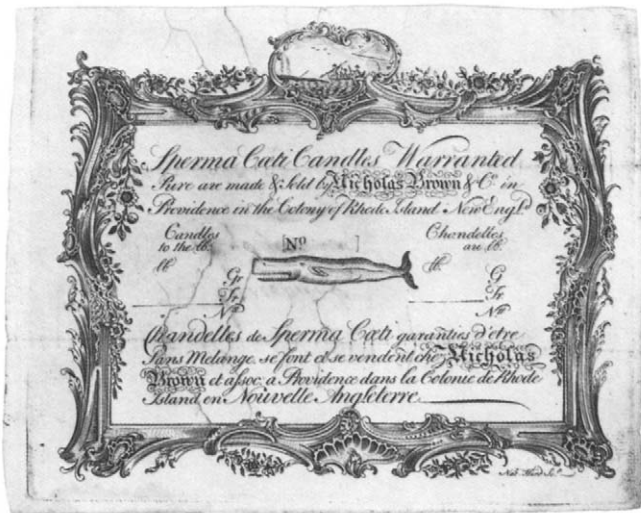 Sperma Cœti Candles Warranted
Pure are made & Sold by Nicholas Brown & Cº. in
Providence in the Colony of Rhode Island New Engld.
Candles [Nº ] Chandelles
to the lb. au lb.
lb lb.
Gr. G
Tr. Tr.
Nt. Nt.
Chandelles de Sperma Cœti garanties d'etre
Sans Melange, se font et se vendent chez Nicholas
Brown et assoc. a Providence dans la Colonie de Rhode
Island en Nouvelle Angleterre